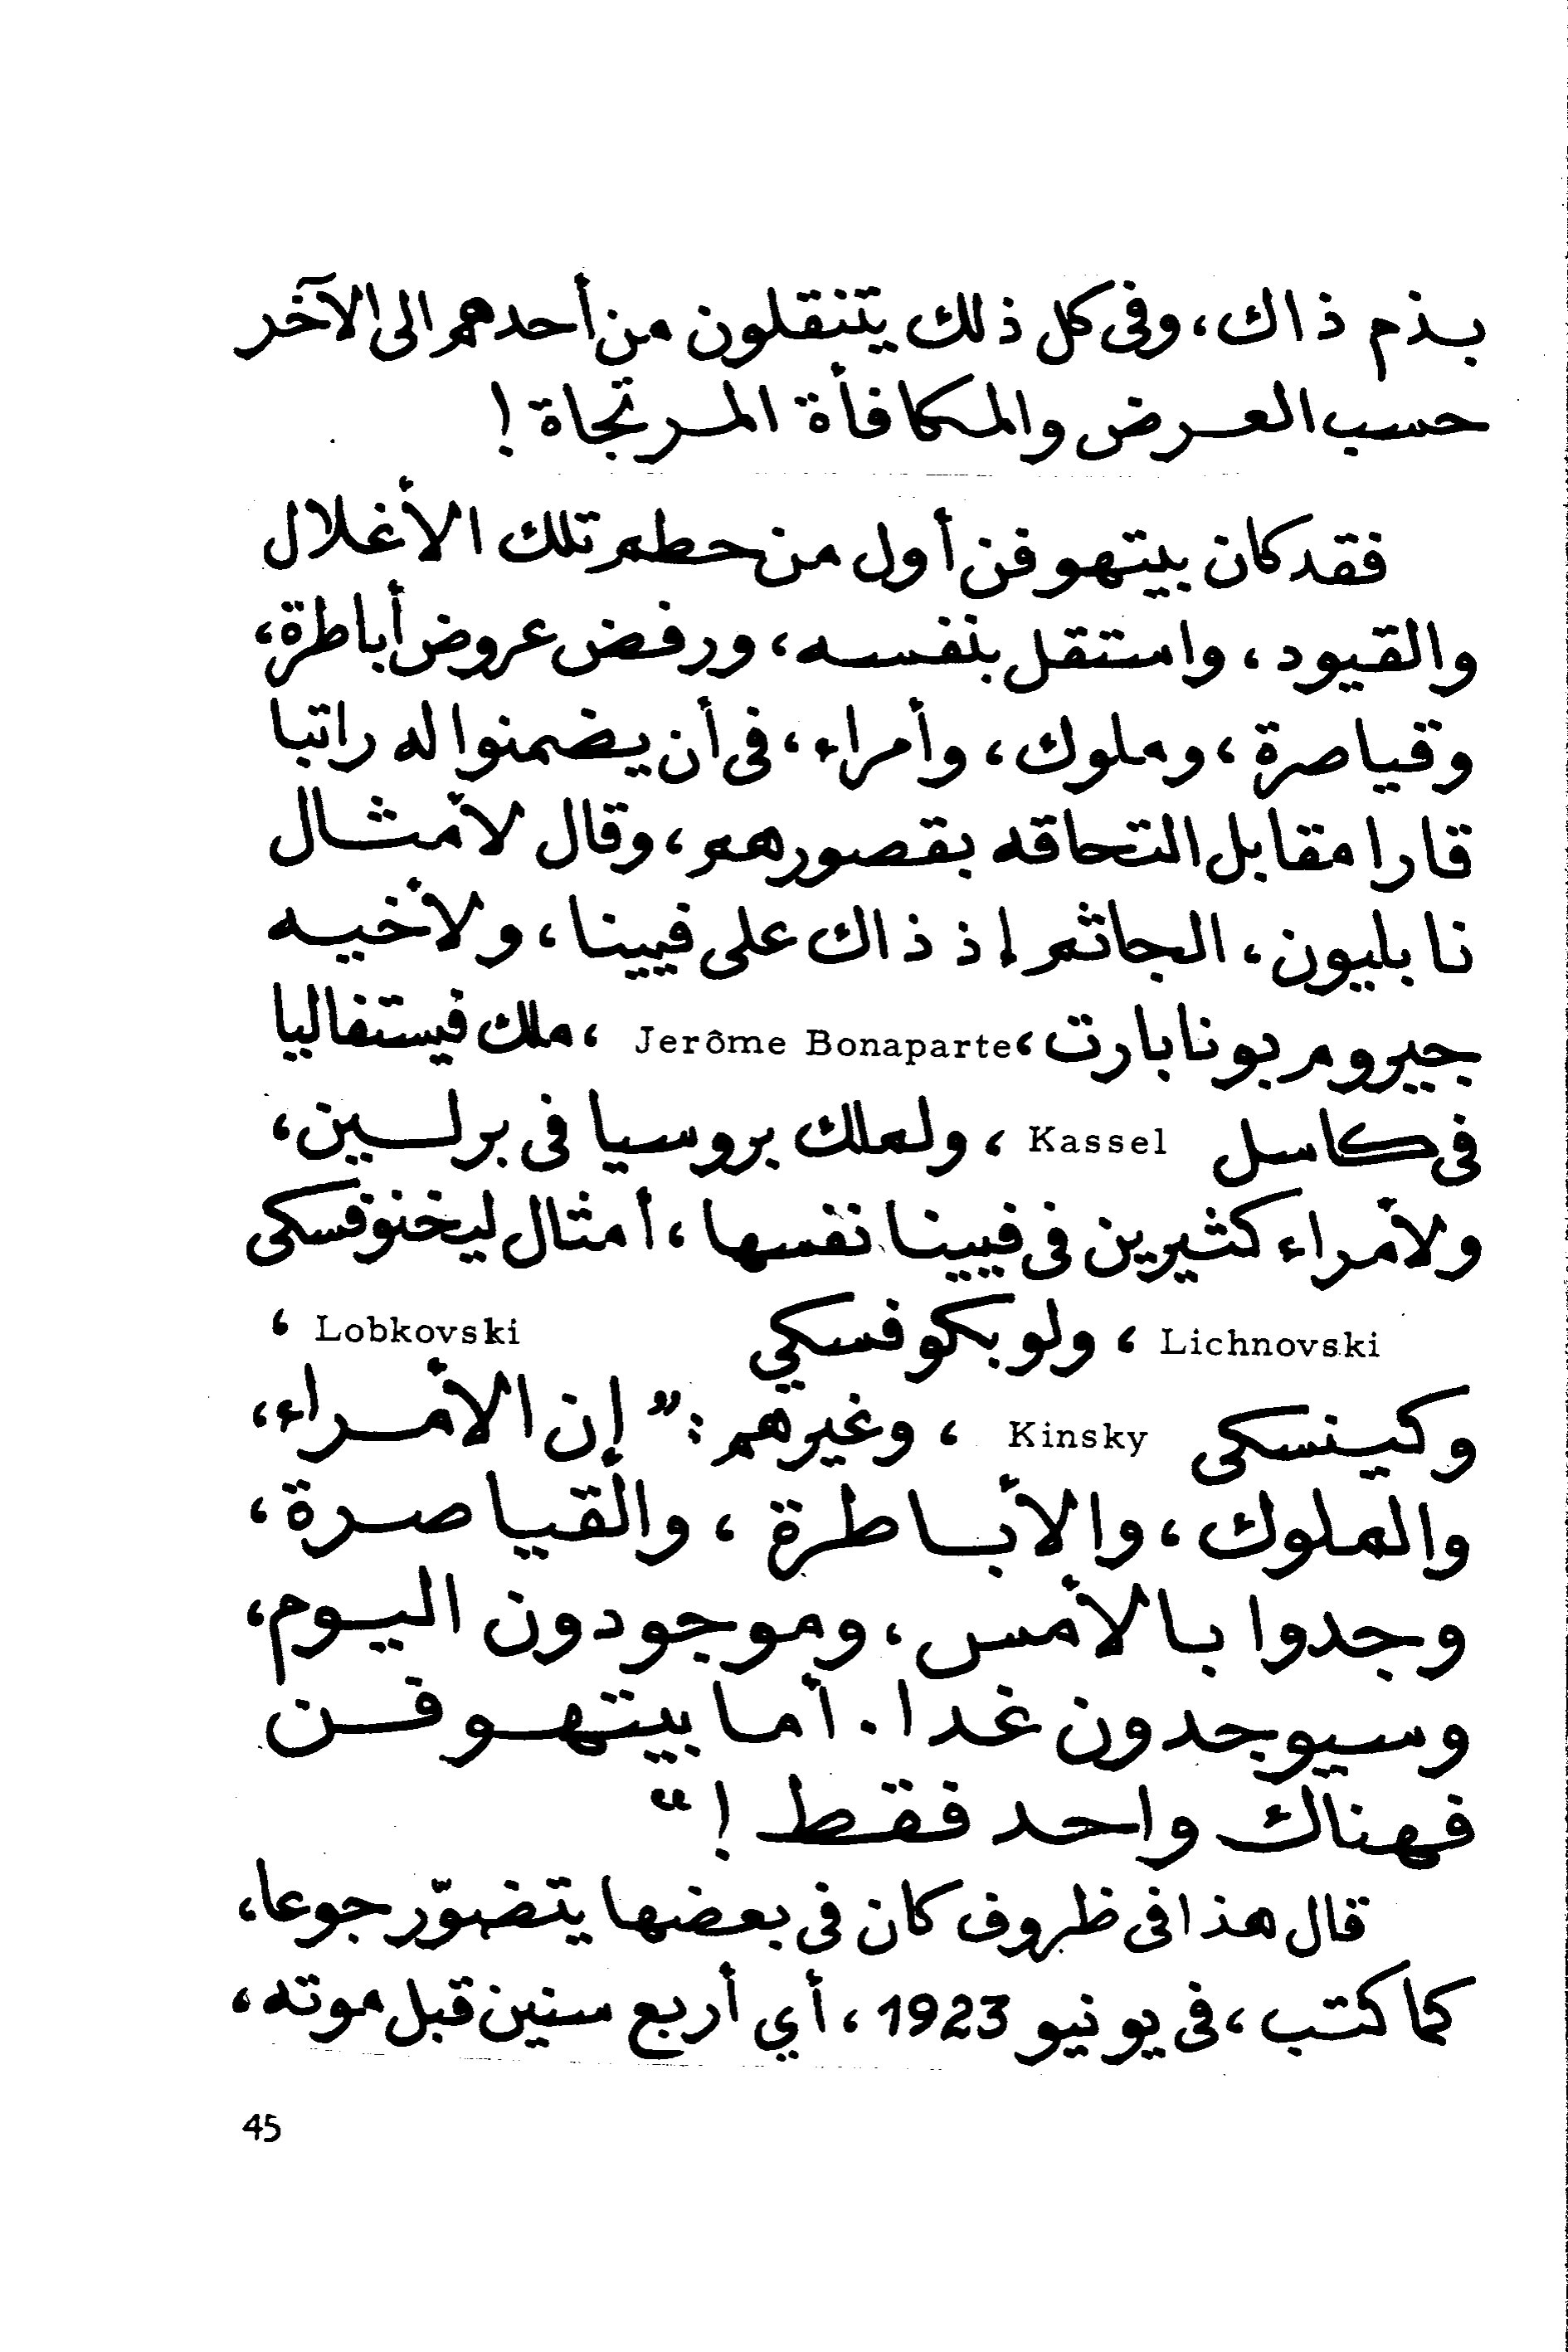 بـذم ذاك، وفى كل ذلك يتنقلون من أحدهم الى الآخر
حسب العـرض والمـكافأة المـرتجاة !
فقد كان بيتهوفن أول من حطم تلك الأغلال
والقيود، واستقل بنفسه، ورفض عروض أباطرة،
وقياصرة، وملوك، وأمراء، فى أن يضمنوا له راتبا
قارا مقابل التحاقه بقصورهم، وقال لأمثـال
نابليون، الجاثم إذ ذاك على فيينا، ولأخيـه
جيروم بونابارت، Jerôme Bonaparte، ملك فيستفاليا
فى كاسل Kassel ، ولملك بروسيا فى برلـين،
ولأمراء كثيرين فى فيينا نفسها، أمثال ليخنوفسكى
Lichnovski ، ولوبكوفسكي Lobkovski ،
وكيـنسكى Kinsky ، وغيرهم: ” إن الأمـراء،
والملوك، والأبـاطرة، والقيـاصـرة،
وجدوا بـالأمس، وموجودون اليـوم،
وسيوجدون غدا. أمـا بيتهـوفـن
فهناك واحد فقـط ! “
قال هذا فى ظروف كان فى بعضها يتضوّر جوعا،
كما كتب، فى يونيو 1923، أي أربع سنين قبل موته،
45